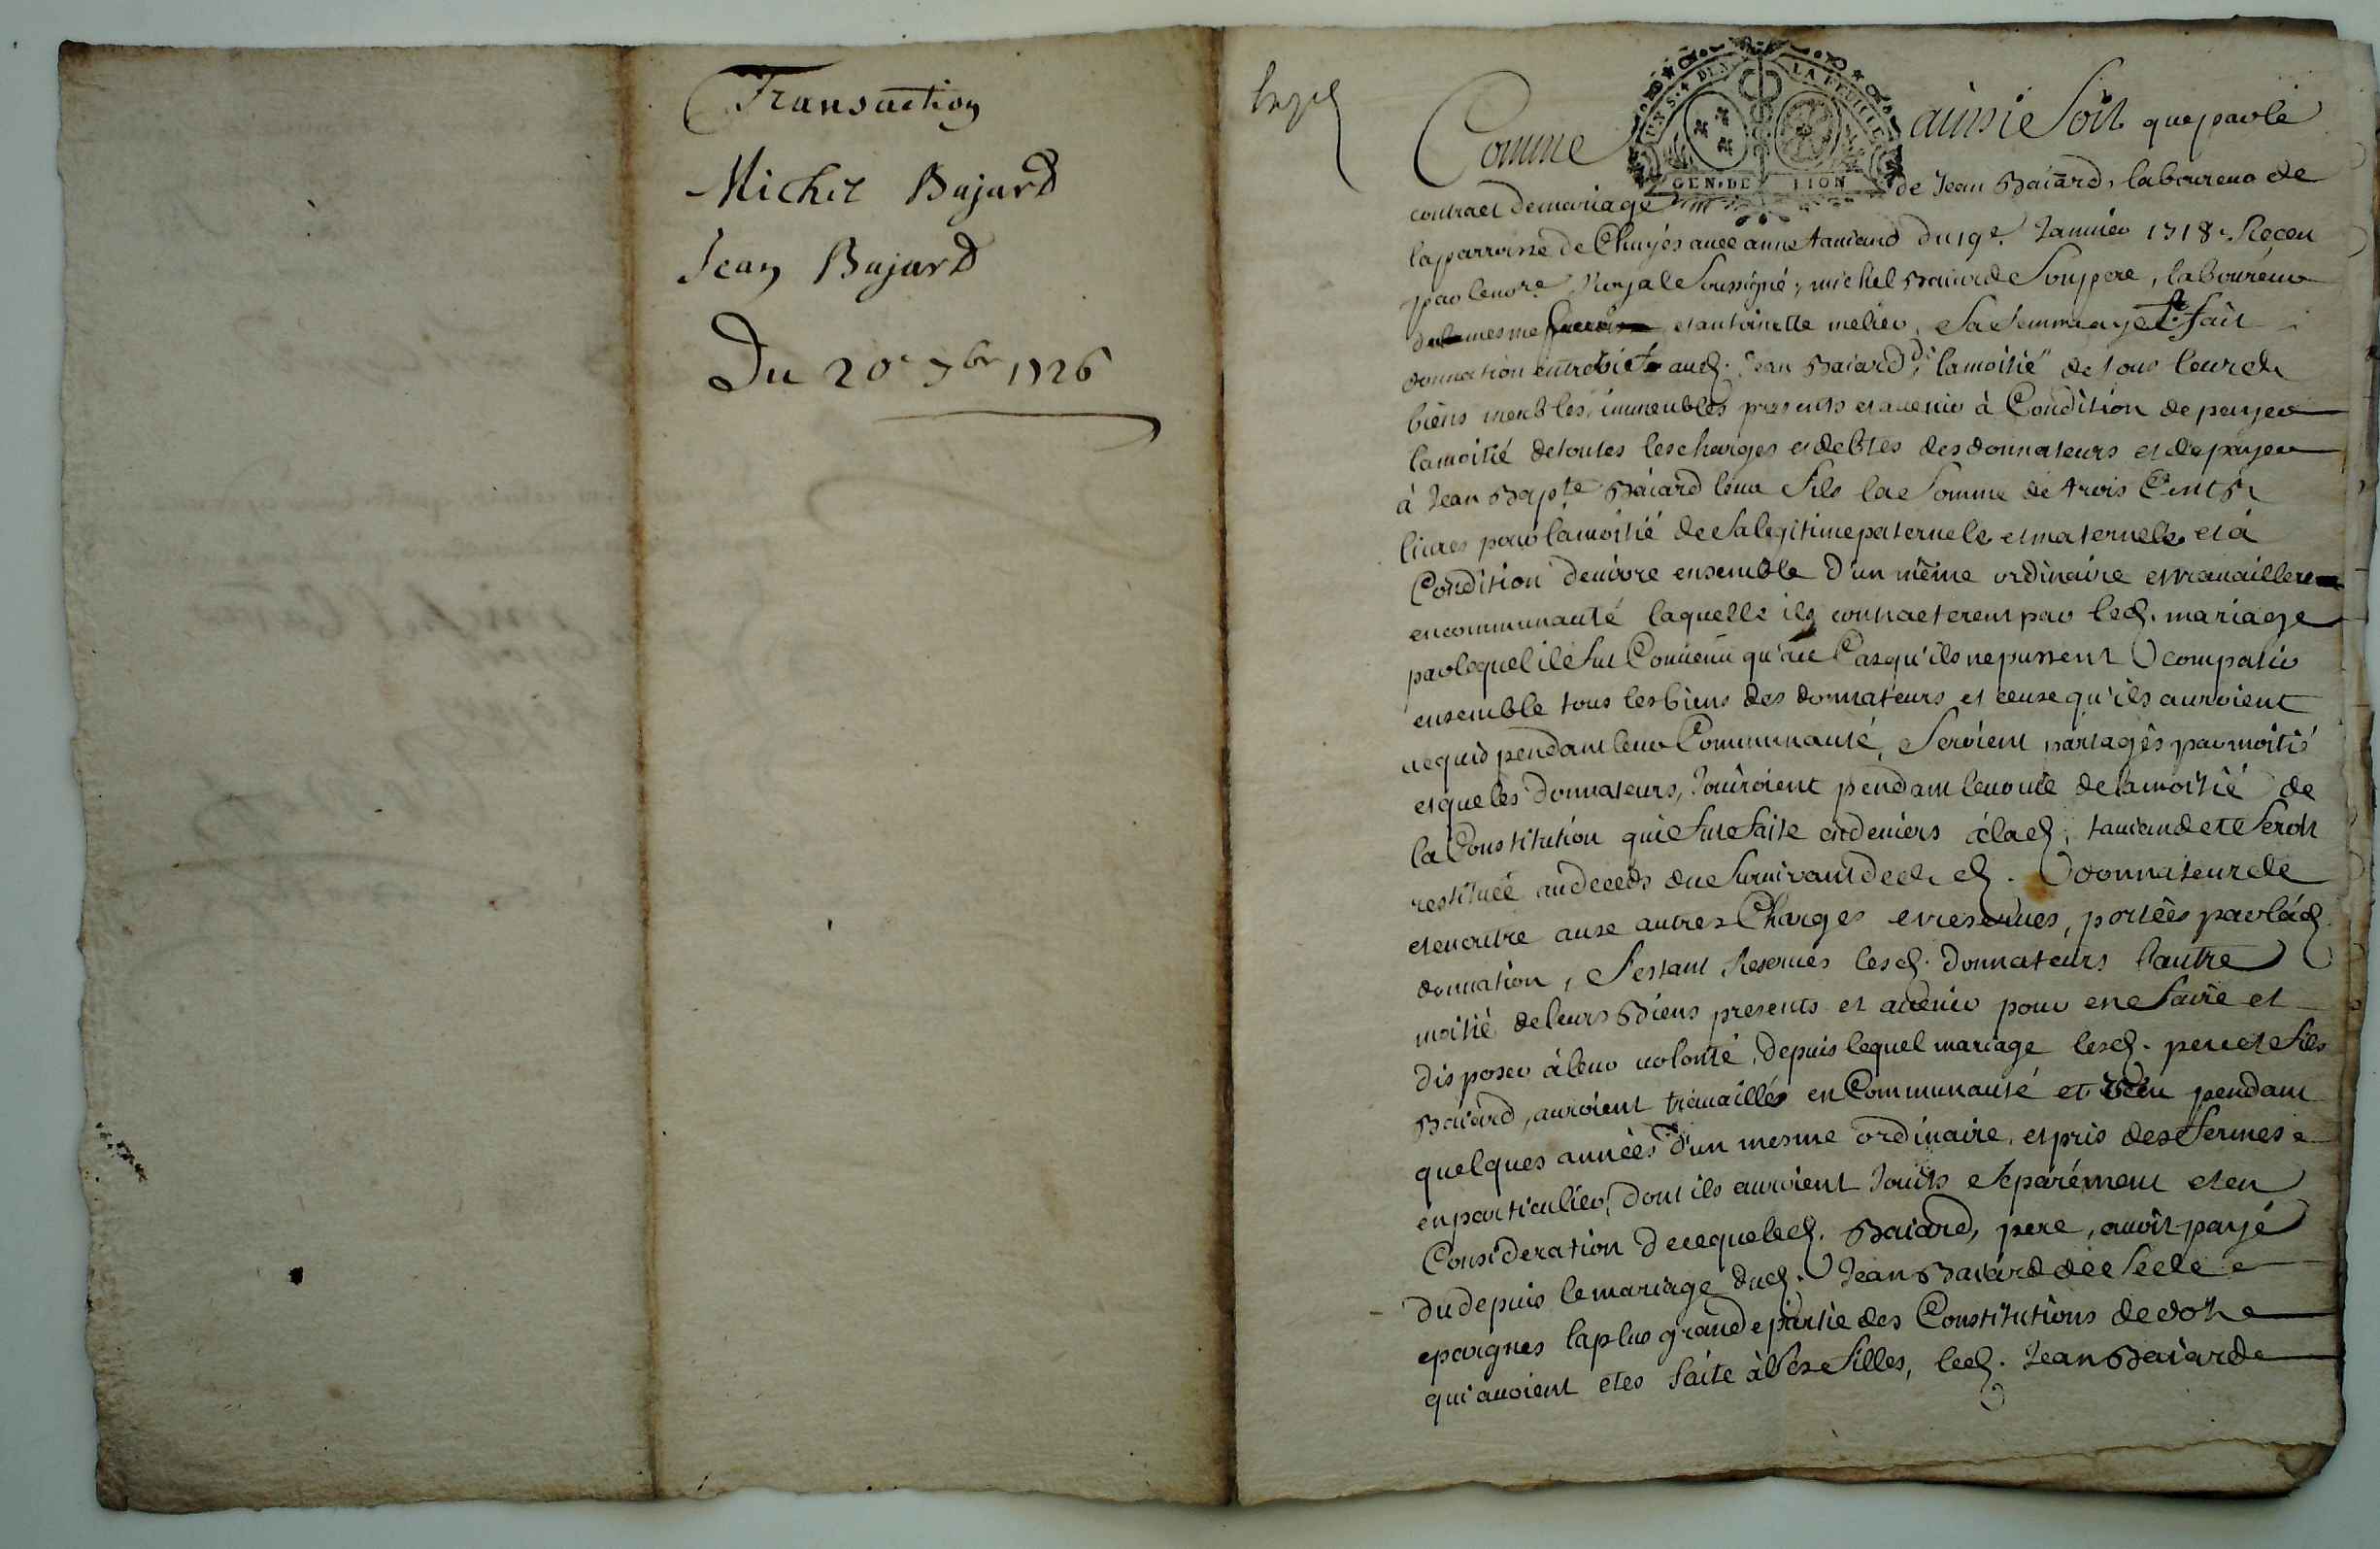 Transaction
Michel Bajard
Jean Bajard
Du 20e 7bre 1726
Comme ainsie soit que par le
GEN. DE LION
contract de mariage de Jean Baiard, laboureur de
la parroisse de Chuyés avec anne taniand du 19e Janvier 1718 Receu
par le nore Royal Soussigné, michel Baiard Son pere, laboureur
de la mesme et antoinette melier, Sa femme aye fait
donnation entrevifs aud. Jean Baiard, de la moitié de tous leurs
biens meubles, immeubles presents et avenir à Condition de payer
la moitié de toutes les charges et debtes des donnateurs et de payer
à Jean Bapte Baiard leur fils la Somme de trois Cents
livres pour la moitié de Sa legitime paternele et maternele et à
Condition de vivre ensemble d'un même ordinaire et travailler
en communauté laquelle ils contracterent par led. mariage
par lequel il fut Convenu qu'au Cas qu'ils ne pussent compatir
ensemble tous les biens des donnateurs et ceux qu'ils auroient
acquis pendant leur Communauté, Seroient partagés par moitié
et que les donnateurs, Jouiroient pendant leur vie de la moitié de
la Constitution qui fut faite en deniers à lad. taniand et Seroit
restituée au deceds du Survivant desd. donnateurs
et en outre aux autres Charges et reserves, portées par lad.
donnation, S'estant Reservés lesd. donnateurs l'autre
moitié de leurs Biens presents et avenir pour en faire et
disposer à leur volonté, depuis lequel mariage lesd. pere et fils
Baiard, auroient travaillés en Communauté et vécu pendant
quelques années d'un mesme ordinaire, et pris des fermes
en particulier, dont ils auroient Jouits Séparément et en
Consideration de ce que led. Baiard, pere, avoit payé
du depuis le mariage dud. Jean Baiard de Sede
epargnes la plus grande partie des Constitutions de dot
qui avoient etes faite à Ses filles, led. Jean Baiard